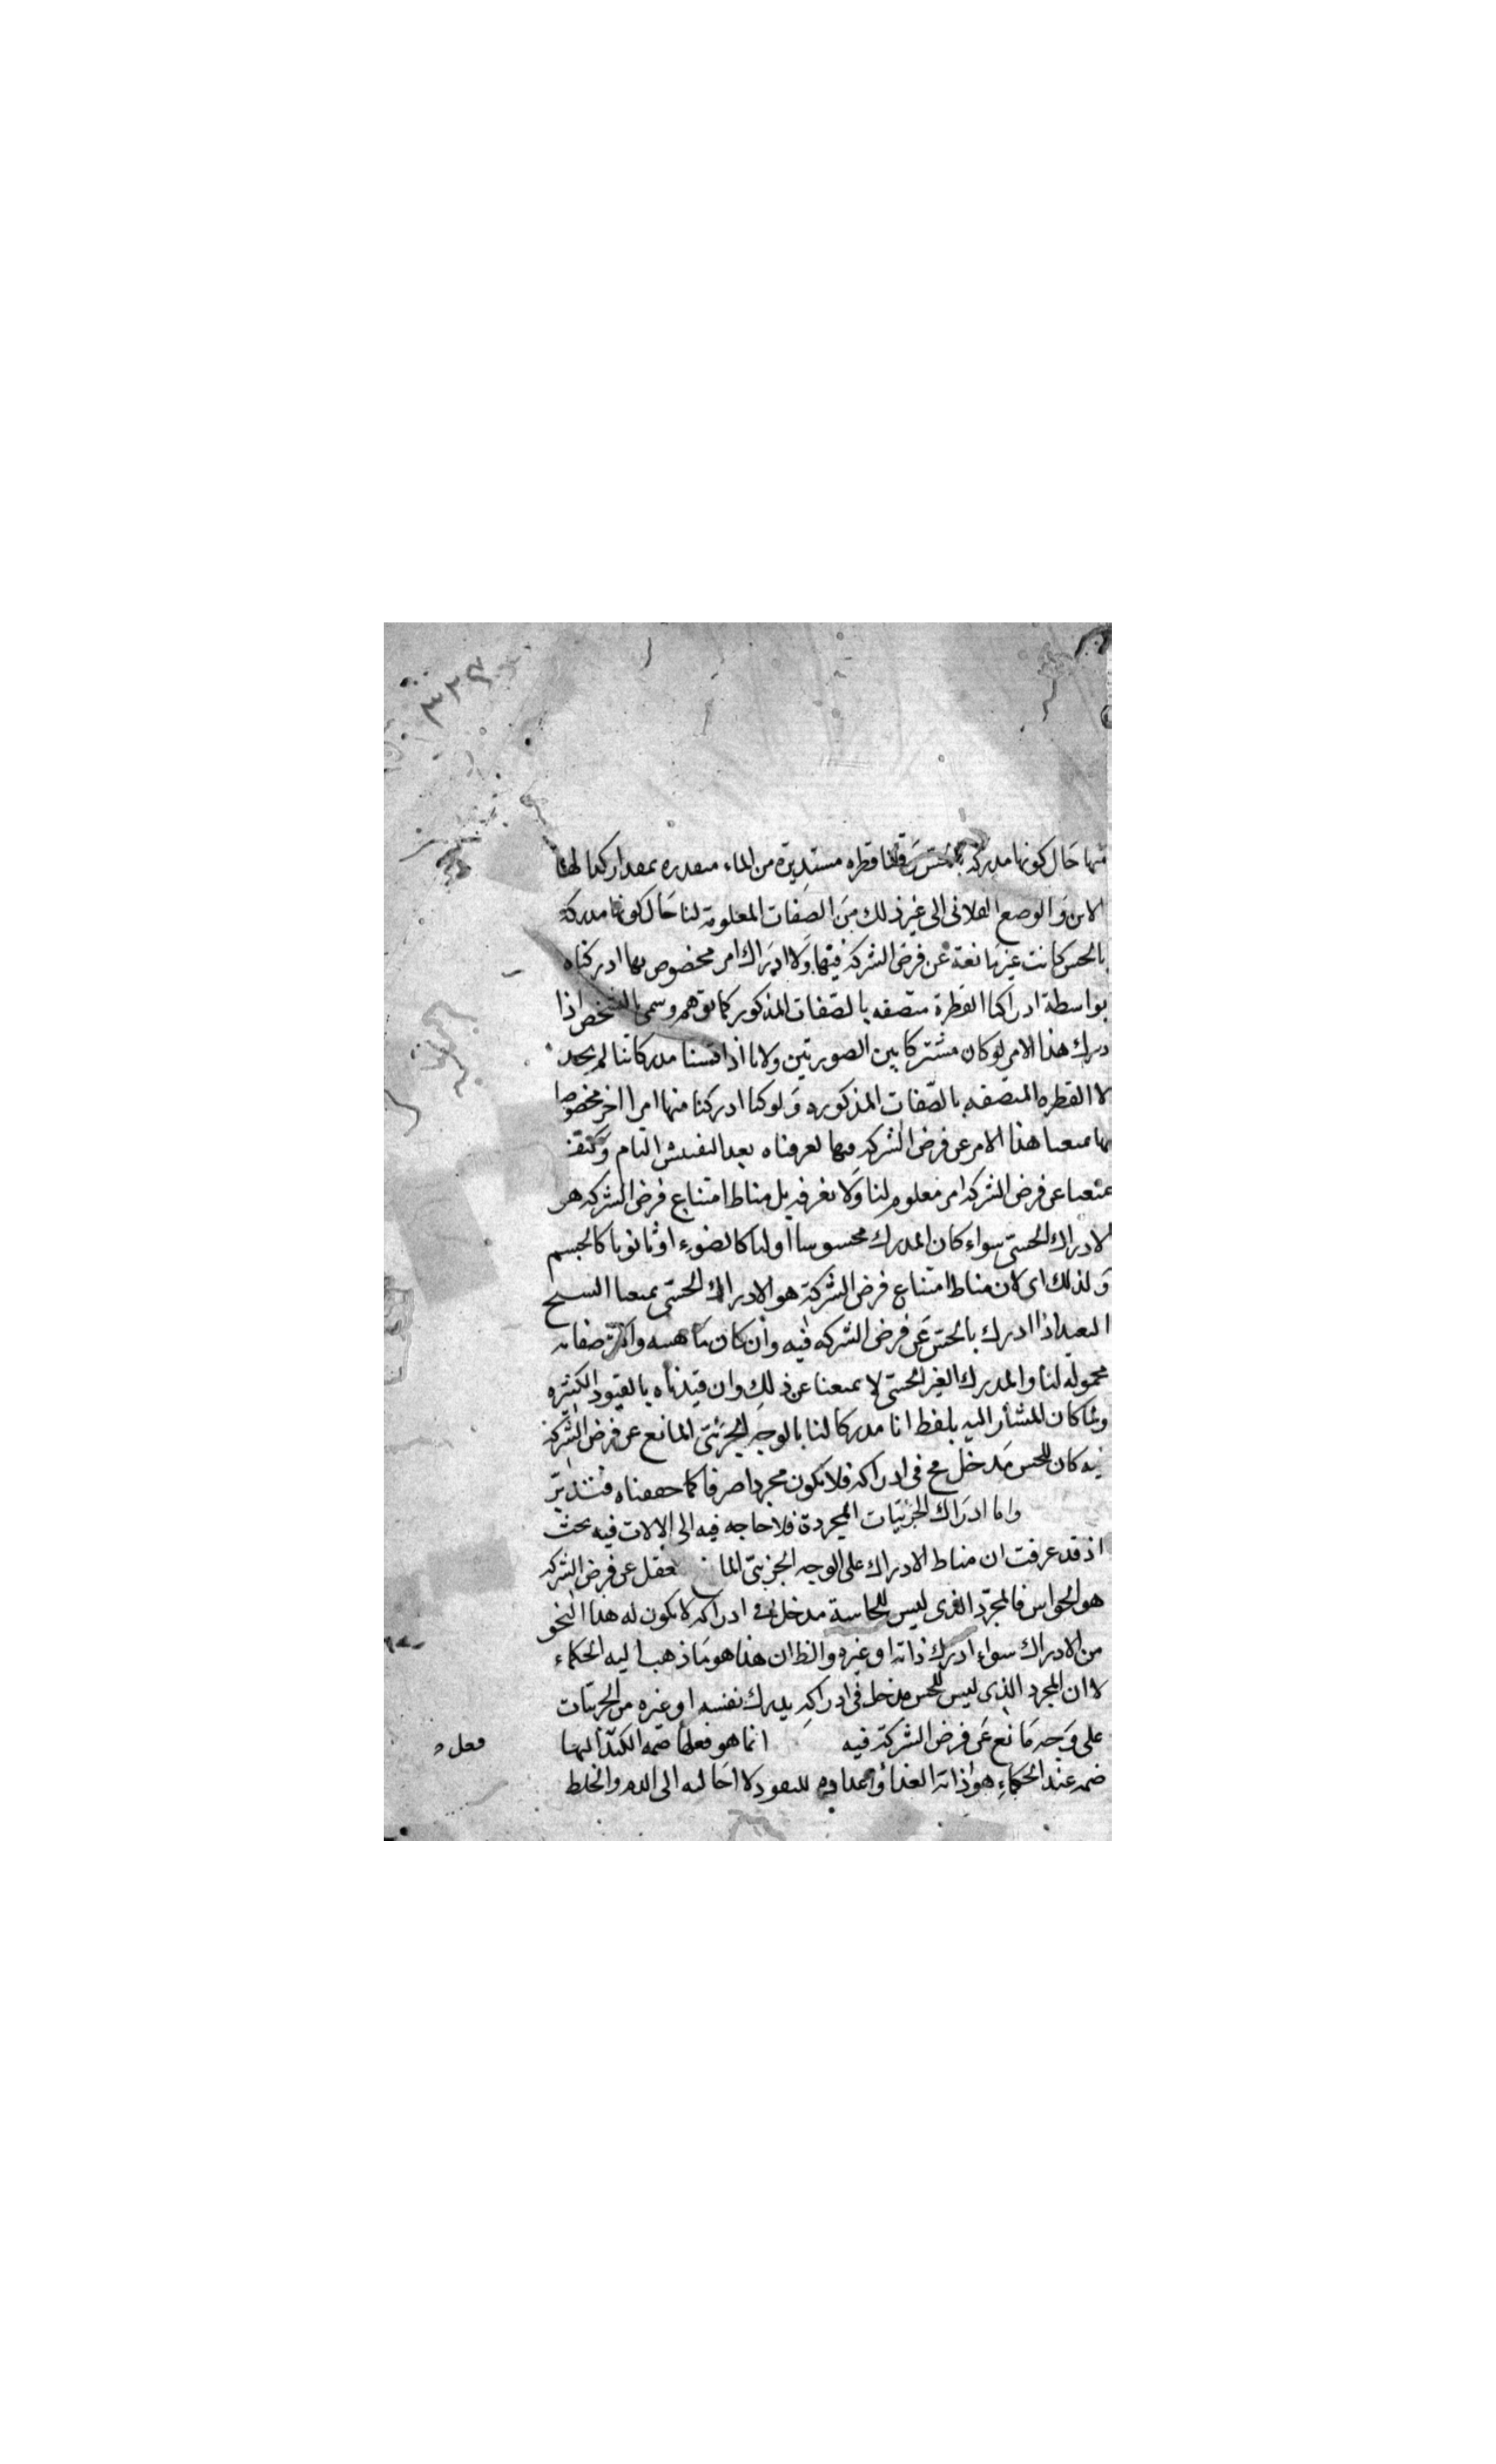 ٣٢٧
منها حال كونها مدركه بالحس وقلنا قطره مستديرة من الماء متقدره بمقدار كذا لها
الاين والوضع الفلانى الى غير ذلك من الصفات المعلومة لنا حال كونها مدركة
بالحس كانت غير مانعة عن فرض الشركة فيها ولا ادراك امر مخصوص بها ادركناه
بواسطة ادراكنا القطرة متصفه بالصفات المذكور كما توهم وسمى بالتشخص اذا
درك هذا الامر لو كان مشتركا بين الصورتين ولانا اذا فتشنا مدركاتنا لم نجد
لا القطره المتصفه بالصفات المذكوره ولو كنا ادركنا منها امرا اخر مخصوصا
بها يمنعنا هذا الامر عن فرض الشركه فيها لعرفناه بعد التفتيش التام وكيف
يمنعنا عن فرض الشركة امر معلوم لنا ولا نعرفه بل مناط امتناع فرض الشركه هو
لادراك الحسى سواء كان المدرك محسوسا اوليا كالضوء او ثانويا كالجسم
ولذلك اى لان مناط امتناع فرض الشركة هو الادراك الحسى يمنعنا الشبح
البعيد اذا ادرك بالحس عن فرض الشركه فيه وان كان ماهيته واكثر صفاته
مجهوله لنا والمدرك الغير الحسى لا يمنعنا عن ذلك وان قيدناه بالقيود الكثيره
ولما كان المشار اليه بلفظ انا مدركا لنا بالوجه الجزئى المانع عن فرض الشركة
فيه كان للحس مدخل مح فى ادراكه فلا يكون مجردا صرفا كما حققناه فتدبر
واما ادراك الجزئيات المجردة فلا حاجه فيه الى الالات فيه بحث
اذ قد عرفت ان مناط الادراك على الوجه الجزئى عن فرض الشركه
هو الحواس فالمجرد الذى ليس للحاسة مدخل فى ادراكه لا يكون له هذا النحو
من الادراك سواء ادرك ذاته او غيره والظ ان هذا هو ما ذهب اليه الحكماء
لا ان المجرد الذى ليس للحس مدخل فى ادراكه يدرك نفسه او غيره من الجزئيات
على وجه مانع عن فرض الشركة فيه انما هو
ضمه عند الحكماء هو اذابة الغذاء واعداده للنفوذ لا احالته الى الدم والخلط